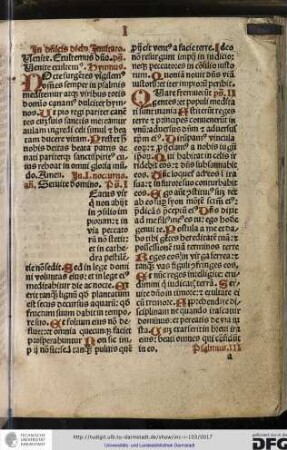 I
In dñicis dieb̄
Venite. Exultemus dño. ps̄.
Venite exultem⁹. Hymnus.
Nocte surgētes vigilem⁹
omēs semper in psalmis
meditemur atq; viribus totis
domino canam⁹ dulciter hym⁊
nos. Ut pio regi pariter cane
tes cū suis sanctis mereamur
aulam ingredi celi simul ⁊ bea
tam ducere vitam. Prestet h̄
nobis deitas beata patris ac
nati pariterq; sanctispūs cu⁊
ius reboat in omni gloria mū
do. Amen. In .I. nocturno.
añ. Servite domino. ps̄. I
Beatus vir
q̄ non abijt
in consilio im
piorum: ⁊ in
via peccato
rū nō stetit:
⁊ in cathe⁊
dra pestilē⁊
tie nō sedit. Sed in lege domi
ni volūtas eius: ⁊ in lege ei⁹
meditabitur die ac nocte. Et
erit tanq̄ lignū qd̄ plantatum
est secus decursus aquarū: qd̄
fructum suum dabit in tempo⁊
re suo. Et folium eius nō de⁊
fluet: ⁊ omnia quecunq; faciet
prosperabuntur. Non sic im⁊
pij nō sic: sed tanq̄ puluis quē
pijcit vent⁹ a facie terre. Ideo
nō resurgunt impij in iudicio:
neq; peccatores in cōsilio iusto⁊
rum. Quoniā nouit dñs viā
iustorū: ⁊ iter impiorū peribit.
Quare fremuerūt ps̄. II
gentes: ⁊ populi medita⁊
ti sunt inania. Astiterūt reges
terre ⁊ principes conuenerūt in
vnū: aduersus dñm ⁊ aduersus
xp̄m ei⁹. Dirūpam⁹ vincula
eoꝝ: ⁊ proijciam⁹ a nobis iugū
ipoꝝ. Qui habitat in celis ir⁊
ridebit eos: ⁊ dñs subsannabit
eos. Tūc loquet̄ ad eos ī ira
sua: ⁊ in furore suo conturbabit
eos. Ego aūt
p̄dicās p̄ceptū ei⁹. Dñs dixit
ad me filius me⁹ es tu: ego ho⁊
die genui te. Postula a me ⁊ da⁊
bo tibi gētes hereditatē tuā: ⁊
possessionē tuā terminos terre
Reges eos in v̄ga ferrea: ⁊
tanq̄ vas figuli cōfringes eos.
Et nunc reges intelligite: eru⁊
dimini q̄ iudicatis terrā. Ser⁊
uite dño in timore: ⁊ exultate ei
cum tremore. Apprehendite di⁊
sciplinam ne quando irascatur
dominus: ⁊ pereatis de via iu⁊
sta. Cū exarserit in breui ira
eius: beati omnes qui cōfidūt
in eo. Psalmus. III
a
TECHNISCHE UNIVERSITÄT DARMSTADT
http://tudigit.ulb.tu-darmstadt.de/show/inc-ii-103/0017
Universitäts- und Landesbibliothek Darmstadt
gefördert durch die
DFG